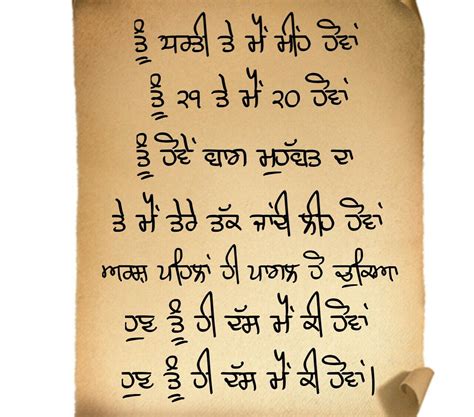 ਤੂੰ ਧਰਤੀ ਤੇ ਮੈਂ ਮੀਂਹ ਹੋਵਾਂ
ਤੂੰ ੨੧ ਤੇ ਮੈਂ ੨੦ ਹੋਵਾਂ
ਤੂੰ ਹੋਵੇਂ ਬਾਗ ਮੁਹੱਬਤ ਦਾ
ਤੇ ਮੈਂ ਤੇਰੇ ਤੱਕ ਜਾਂਦੀ ਲੀਹ ਹੋਵਾਂ
ਅਰਸ਼ ਪਹਿਲਾਂ ਹੀ ਪਾਗਲ ਹੋ ਚੁਕਿਆ
ਹੁਣ ਤੂੰ ਹੀ ਦੱਸ ਮੈਂ ਕੀ ਹੋਵਾਂ
ਹੁਣ ਤੂੰ ਹੀ ਦੱਸ ਮੈਂ ਕੀ ਹੋਵਾਂ|